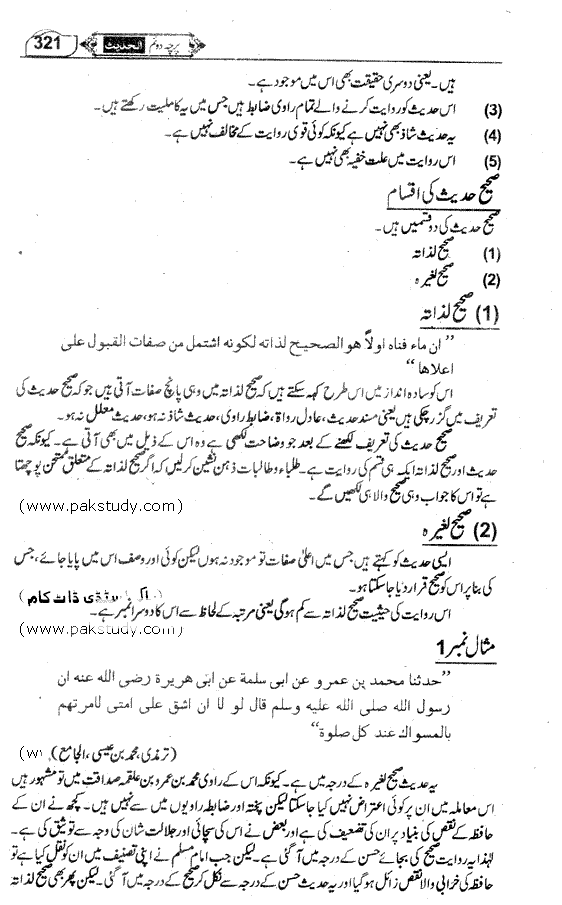 321 الحدیث پرچہ دوئم
ہیں۔ یعنی دوسری حقیقت بھی اس میں موجود ہے۔
(3) اس حدیث کو روایت کرنے والے تمام راوی ضابط ہیں جس میں یہ کاملیت رکھتے ہیں۔
(4) یہ حدیث شاذ بھی نہیں ہے کیونکہ کوئی قوی روایت کے مخالف نہیں ہے۔
(5) اس روایت میں علت خفیہ بھی نہیں ہے۔
صحیح حدیث کی اقسام
صحیح حدیث کی دو قسمیں ہیں۔
(1) صحیح لذاتہ
(2) صحیح لغیرہ
(1) صحیح لذاتہ
”ان ماء فناه اولاً هو الصحيح لذاته لكونه اشتمل من صفات القبول على
اعلاها“
اس کو سادہ انداز میں اس طرح کہہ سکتے ہیں کہ صحیح لذاتہ میں وہی پانچ صفات آتی ہیں جو کہ صحیح حدیث کی
تعریف میں گزر چکی ہیں یعنی مسند حدیث، عادل رواۃ، ضابط راوی، حدیث شاذ نہ ہو، حدیث معلل نہ ہو۔
صحیح حدیث کی تعریف لکھنے کے بعد جو وضاحت لکھی ہے وہ اس کے ذیل میں بھی آتی ہے۔ کیونکہ صحیح
حدیث اور صحیح لذاتہ ایک ہی قسم کی روایت ہے۔ طلباء و طالبات ذہن نشین کر لیں کہ اگر صحیح لذاتہ کے متعلق ممتحن پوچھتا
ہے تو اس کا جواب وہی صحیح والا ہی لکھیں گے۔
(www.pakstudy.com)
(2) صحیح لغیرہ
ایسی حدیث کو کہتے ہیں جس میں اعلیٰ صفات تو موجود نہ ہوں لیکن کوئی اور وصف اس میں پایا جائے، جس
کی بنا پر اس کو صحیح قرار دیا جا سکتا ہو۔
(پاک سٹڈی ڈاٹ کام)
اس روایت کی حیثیت صحیح لذاتہ سے کم ہوگی یعنی مرتبہ کے لحاظ سے اس کا دوسرا نمبر ہے۔
(www.pakstudy.com)
مثال نمبر 1
”حدثنا محمد بن عمرو عن ابى سلمة عن ابى هريرة رضى الله عنه ان
رسول الله صلى الله عليه وسلم قال لو لا ان اشق على امتى لامرتهم
بالمسواك عند كل صلوة“
(ترمذی، محمد بن عیسیٰ، الجامع) (w
یہ حدیث صحیح لغیرہ کے درجہ میں ہے۔ کیونکہ اس کے راوی محمد بن عمرو بن علقمہ صداقت میں تو مشہور ہیں
اس معاملہ میں ان پر کوئی اعتراض نہیں کیا جا سکتا لیکن پختہ اور ضابط راویوں میں سے نہیں ہیں۔ کچھ نے ان کے
حافظہ کے نقص کی بنیاد پر ان کی تضعیف کی ہے اور بعض نے اس کی سچائی اور جلالت شان کی وجہ سے توثیق کی ہے۔
لہٰذا یہ روایت صحیح کی بجائے حسن کے درجہ میں آ گئی ہے۔ لیکن جب امام مسلم نے اپنی تصنیف میں ان کو نقل کیا ہے تو
حافظہ کی خرابی والا نقص زائل ہو گیا اور یہ حدیث حسن کے درجہ سے نکل کر صحیح کے درجہ میں آ گئی۔ لیکن پھر بھی صحیح لذاتہ